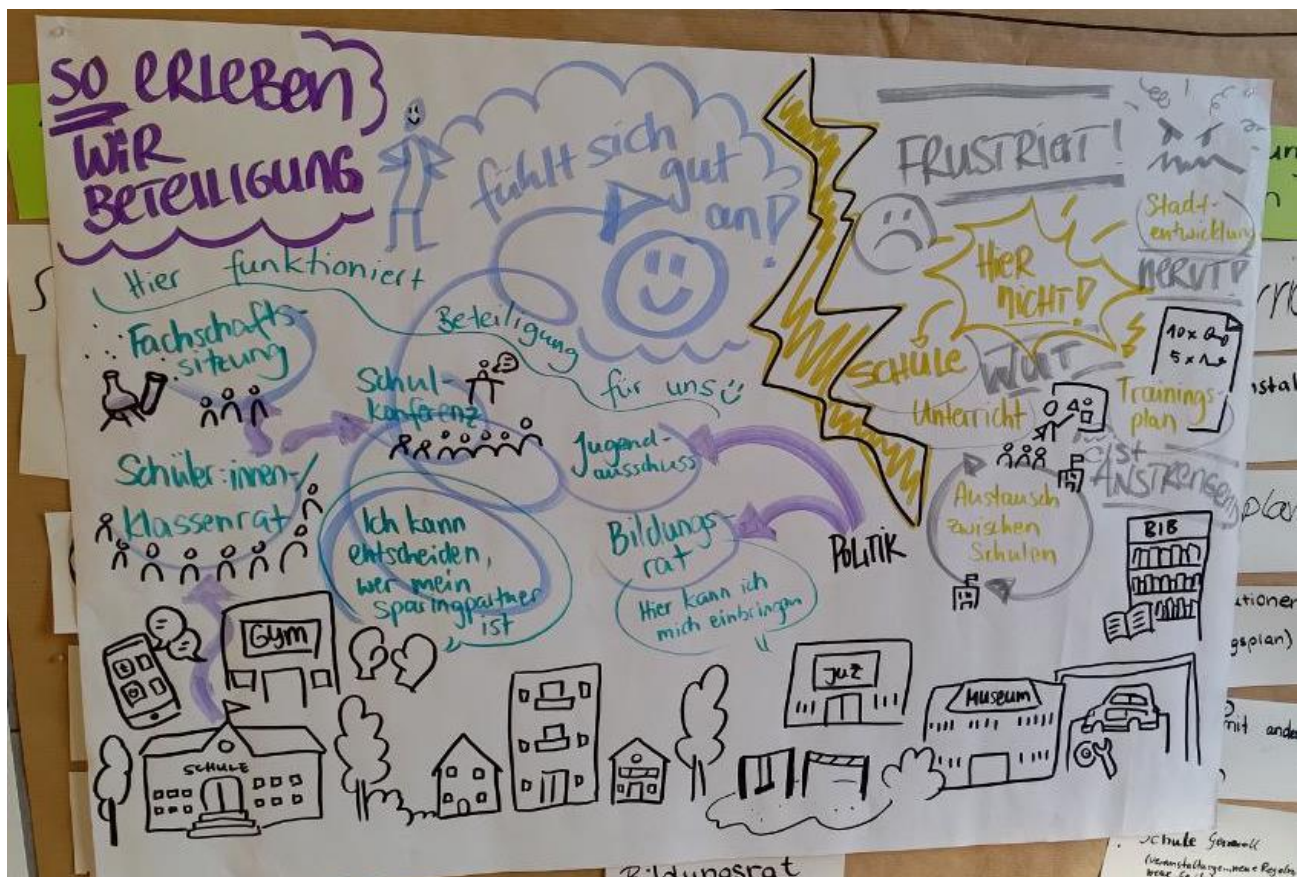 SO ERLEBEN
WIR
BETEILIGUNG
fühlt sich
gut
an!
Hier funktioniert
Beteiligung
für uns
Fachschafts-
sitzung
Schul-
konferenz
Jugend-
ausschuss
Schüler:innen-/
Klassenrat
Ich kann
entscheiden,
wer mein
Sparingpartner
ist
Bildungs-
rat
Hier kann ich
mich einbringen
POLITIK
FRUSTRIERT!
HIER
NICHT!
Stadt-
entwicklung
NERVT!
SCHULE
WUT
Unterricht
10x
5x
Trainings-
plan
ist
ANSTRENGEND
Austausch
zwischen
Schulen
BIB
GYM
SCHULE
JUZ
MUSEUM
gsplan)
mit ande
Bildungsrat
Schule